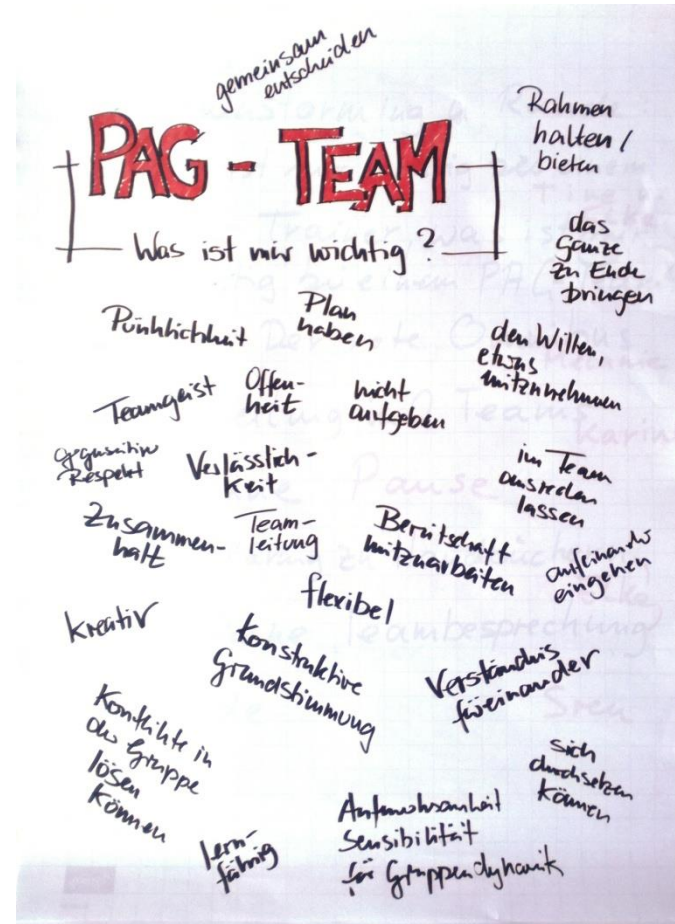 gemeinsam
entscheiden
PAG - TEAM
Was ist mir wichtig?
Rahmen
halten /
bieten
das
Ganze
zu Ende
bringen
Pünktlichkeit
Plan
haben
den Willen,
etwas
mitzunehmen
Teamgeist
Offen-
heit
nicht
aufgeben
gegenseitiger
Respekt
Verlässlich-
keit
im Team
ausreden
lassen
Zusammen-
halt
Team-
leitung
Bereitschaft
mitzuarbeiten
aufeinander
eingehen
flexibel
kreativ
Konstruktive
Grundstimmung
Verständnis
füreinander
Konflikte in
der Gruppe
lösen
können
sich
durchsetzen
können
lern-
fähig
Aufmerksamkeit
Sensibilität
für Gruppendynamik
Pause
Teambesprechung